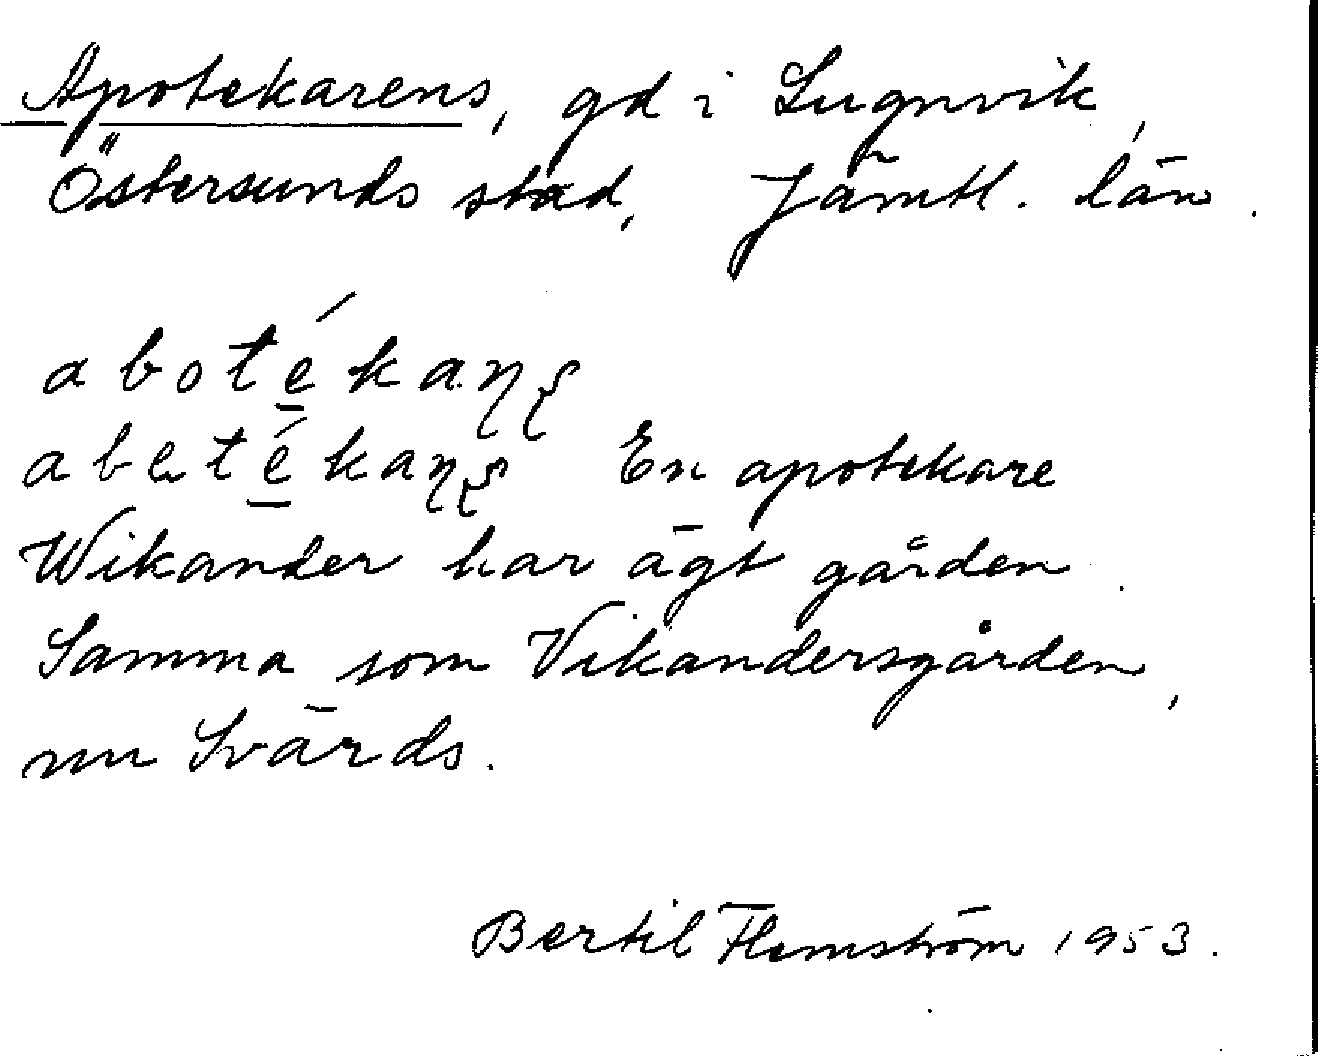 Apotekarens, gd i Lugnvik,
Östersunds stad, Jämtl. län.
abotékaɳʂ
abetékaɳʂ En apotekare
Wikander har ägt gården.
Samma som Vikandersgården,
nu Svärds.
Bertil Flemström 1953.